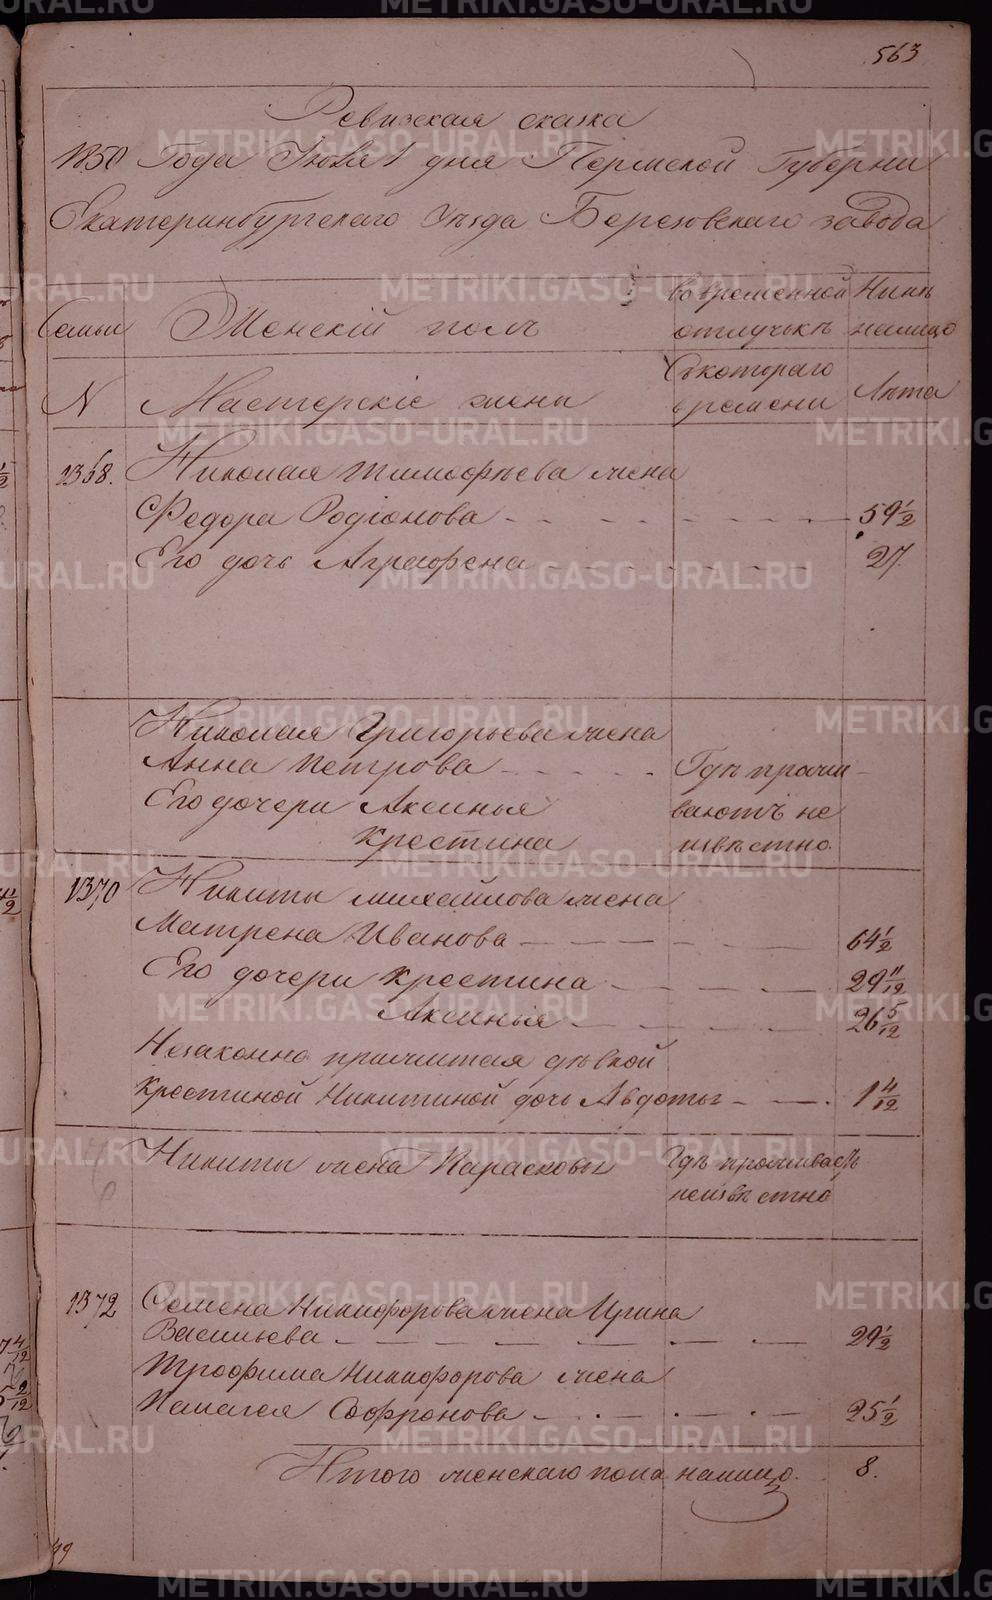 563
Ревизская сказка
1850 Года Июля 1 дня Пермской Губернии
Екатеринбургскаго Уѣзда Березовскаго завода
Семьи
Женскій полъ
Во временной отлучькѣ
Нынѣ на лицо
N
Мастерскіе жены
Съ котораго времени
Лѣта
1368.
Николая Тимофѣева жена
Федора Родіонова 59 1/2
Его дочь Аграфена 27.
Николая Григорьева жена
Анна Петрова Гдѣ прожи-
Его дочери Аксинья ваютъ не
Крестина извѣстно.
1370 Никиты Михайлова жена
Матрена Иванова 64 1/2
Его дочери Крестина 29 11/12
Аксинья 26 5/12
Незаконно прижитая дѣвкой
Крестиной Никитиной дочь Авдотья 1 4/12
Никиты жена Парасковья Гдѣ проживаетъ
неизвѣстно
1372 Семена Никифорова жена Ирина
Васильева 29 1/2
Трофима Никифорова жена
Пелагея Софронова 25 1/2
Итого женскаго пола налицо. 8.
METRIKI.GASO-URAL.RU